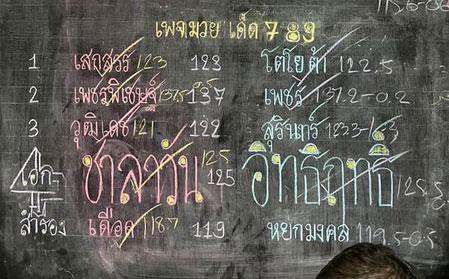 115.6-0
เพจมวยเด็ด789
1 เสกสรร 123 123 โตโยต้า 122.5
2 เพชรพิเชษฐ์ 137.5 137 เพชร 137.2-0.2
3 วุฒิเดช 121 122 สุรินทร์
เอก ชาลาวัน 125 125 อิทธิฤทธิ์ 125
สำรอง เดือด 118.7 119 หยกมงคล 119.5-0.5